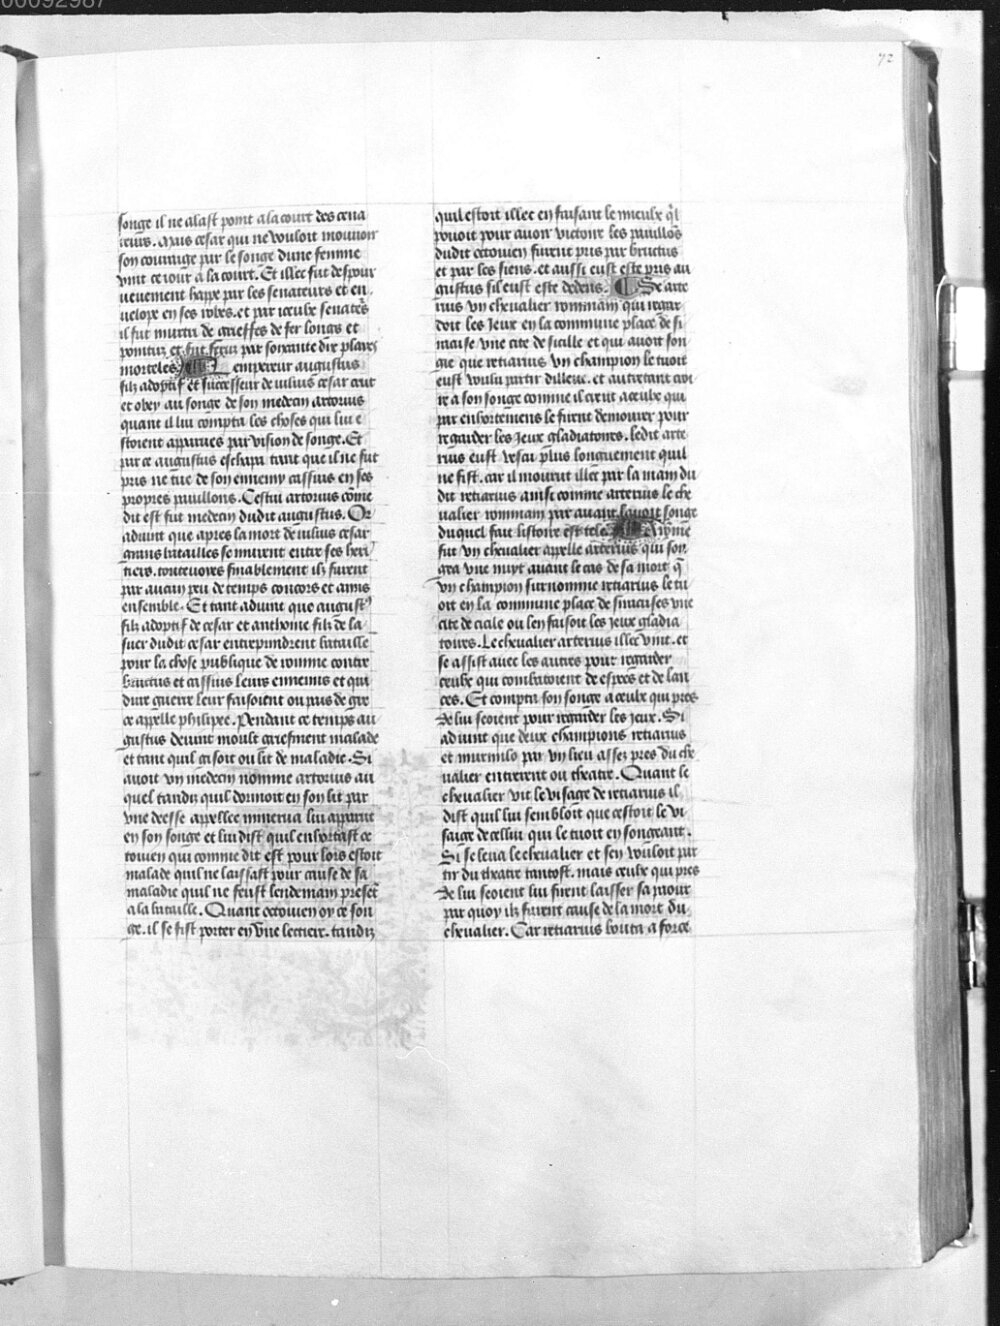 00092987
72
songe il ne alast point a la court des cena
teurs. Mais cesar qui ne vouloit mouvoir
son courage par le songe dune femme
vint ce iour a la court. Et illec fut despour
ueuement happe par les senateurs et en
uelope en ses robes. et par iceulx senatẽs
il fut murtri de greffes de fer longs et
pointuz et fut feru par soixante dix playes
morteles. Lempereur augustus
filz adoptif et successeur de iulius cesar crut
et obey au songe de son medecin artorius
quant il lui compta les choses qui lui e
stoient apparues par vision de songe. Et
par ce augustus eschapa tant que il ne fut
pris ne tue de son ennemy cassius en ses
propres pauillons. Cestui artorius cõme
dit est fut medecin dudit augustus. Or
aduint que apres la mort de iulius cesar
grans batailles se murent entre ses heri
tiers. toutevoies finablement ilz furent
par aucun peu de temps concors et amis
ensemble. Et tant aduint que august⁹
filz adoptif de cesar et anthoine filz de la
suer dudit cesar entreprindrent bataille
pour la chose publique de romme contre
bructus et cassius leurs ennemis et qui
dure guerre leur faisoient ou pais de gre
ce appelle philippe. Pendant ce temps au
gustus deuint moult griefment malade
et tant quil gisoit ou lit de maladie. Si
auoit vn medecin nomme artorius au
quel tandiz quil dormoit en son lit par
vne deesse appellee minerua lui apparut
en son songe et lui dist quil enhortast oc
touien qui comme dit est pour lors estoit
malade quil ne laissast pour cause de sa
maladie quil ne feust lendemain presẽt
a la bataille. Quant octouien oy ce son
ge. il se fist porter en vne lectiere. tandiz
quil estoit illec en faisant le mieulx q̃l
pouoit pour auoir victoire les pauillõs
dudit octouien furent pris par bructus
et par les siens. et aussi eust este pris au
gustus sil eust este dedens. Se arte
rius vn chevalier rommain qui regar
doit les Jeux en la commune place de si
racuse vne cite de sicille et qui auoit son
gie que retiarius vn champion le tuoit
eust voulu partir dilleuc. et autretant croi
re a son songe comme il creut a ceulx qui
par enhortemens le firent demourer pour
regarder les Jeux gladiatoires. ledit arte
rius eust vescu plus longuement quil
ne fist. car il mourut illec par la main du
dit retiarius ainsi comme arterius le che
ualier rommain par auant lauoit songe
duquel fait listoire est tele. A romme
fut vn cheualier appelle arterius qui son
gea vne nuyt auant le cas de sa mort q̃
vn champion surnomme retiarius le tu
oit en la commune place de siracuses vne
cite de cicile ou len faisoit les jeux gladia
toires. Le cheualier arterius illec vint. et
se assist auec les autres pour regarder
ceulx qui combatoient de espees et de lan
ces. Et compta son songe a ceulx qui pres
de lui seoient pour regarder les jeux. Si
aduint que deux champions retiarius
et murmilo par vn lieu assez pres du che
ualier entrerent ou theatre. Quant le
cheualier vit le visage de retiarius il
dist quil lui sembloit que cestoit le vi
saige de cellui qui le tuoit en songeant.
Si se leua le cheualier et sen vouloit par
tir du theatre tantost. mais ceulx qui pres
de lui seoient lui firent laisser sa paour
par quoy ilz furent cause de la mort du
cheualier. Car retiarius bouta a force